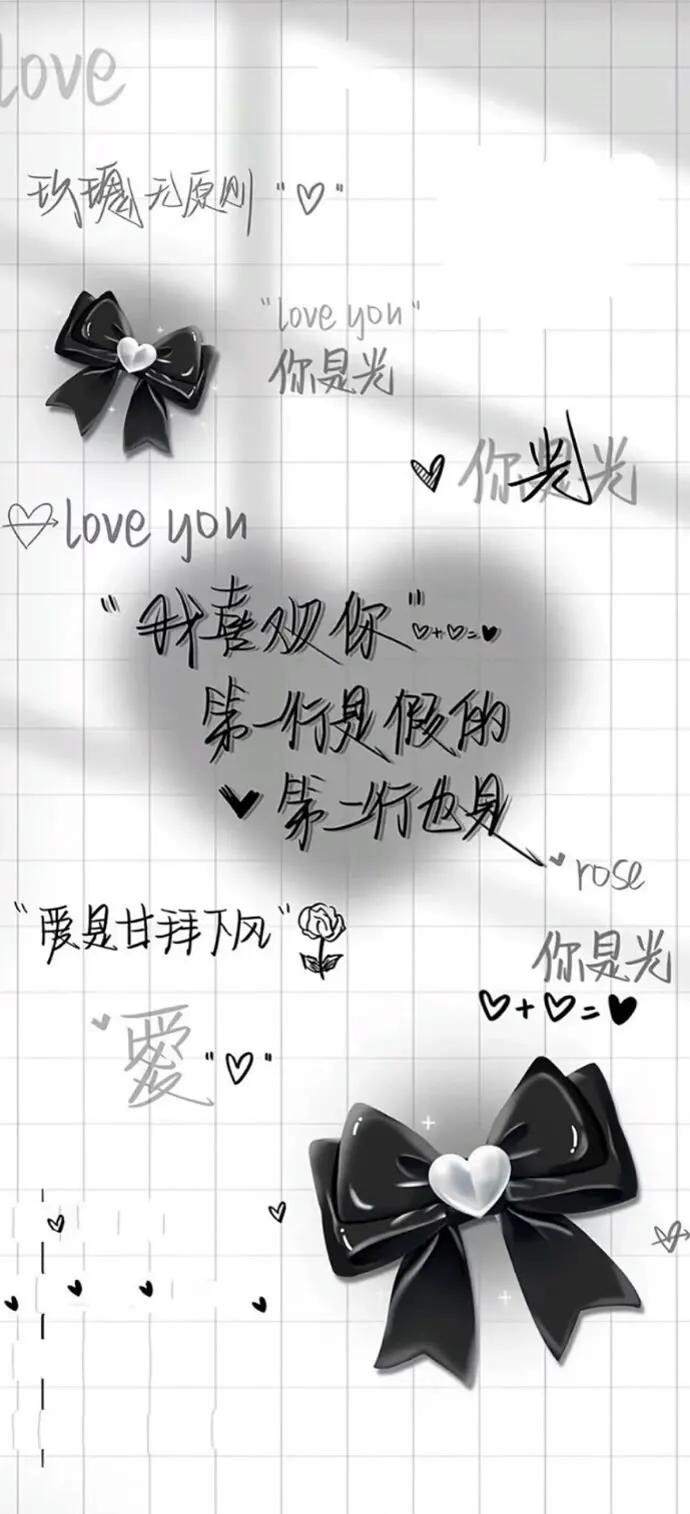 love
玫瑰无原则 "♡"
"love you"
你是光
你是光
love you
"我喜欢你" ♡+♡=♥
第一行是假的
第二行也是
rose
"爱是甘拜下风"
你是光
♡+♡=♥
愛 "♡"